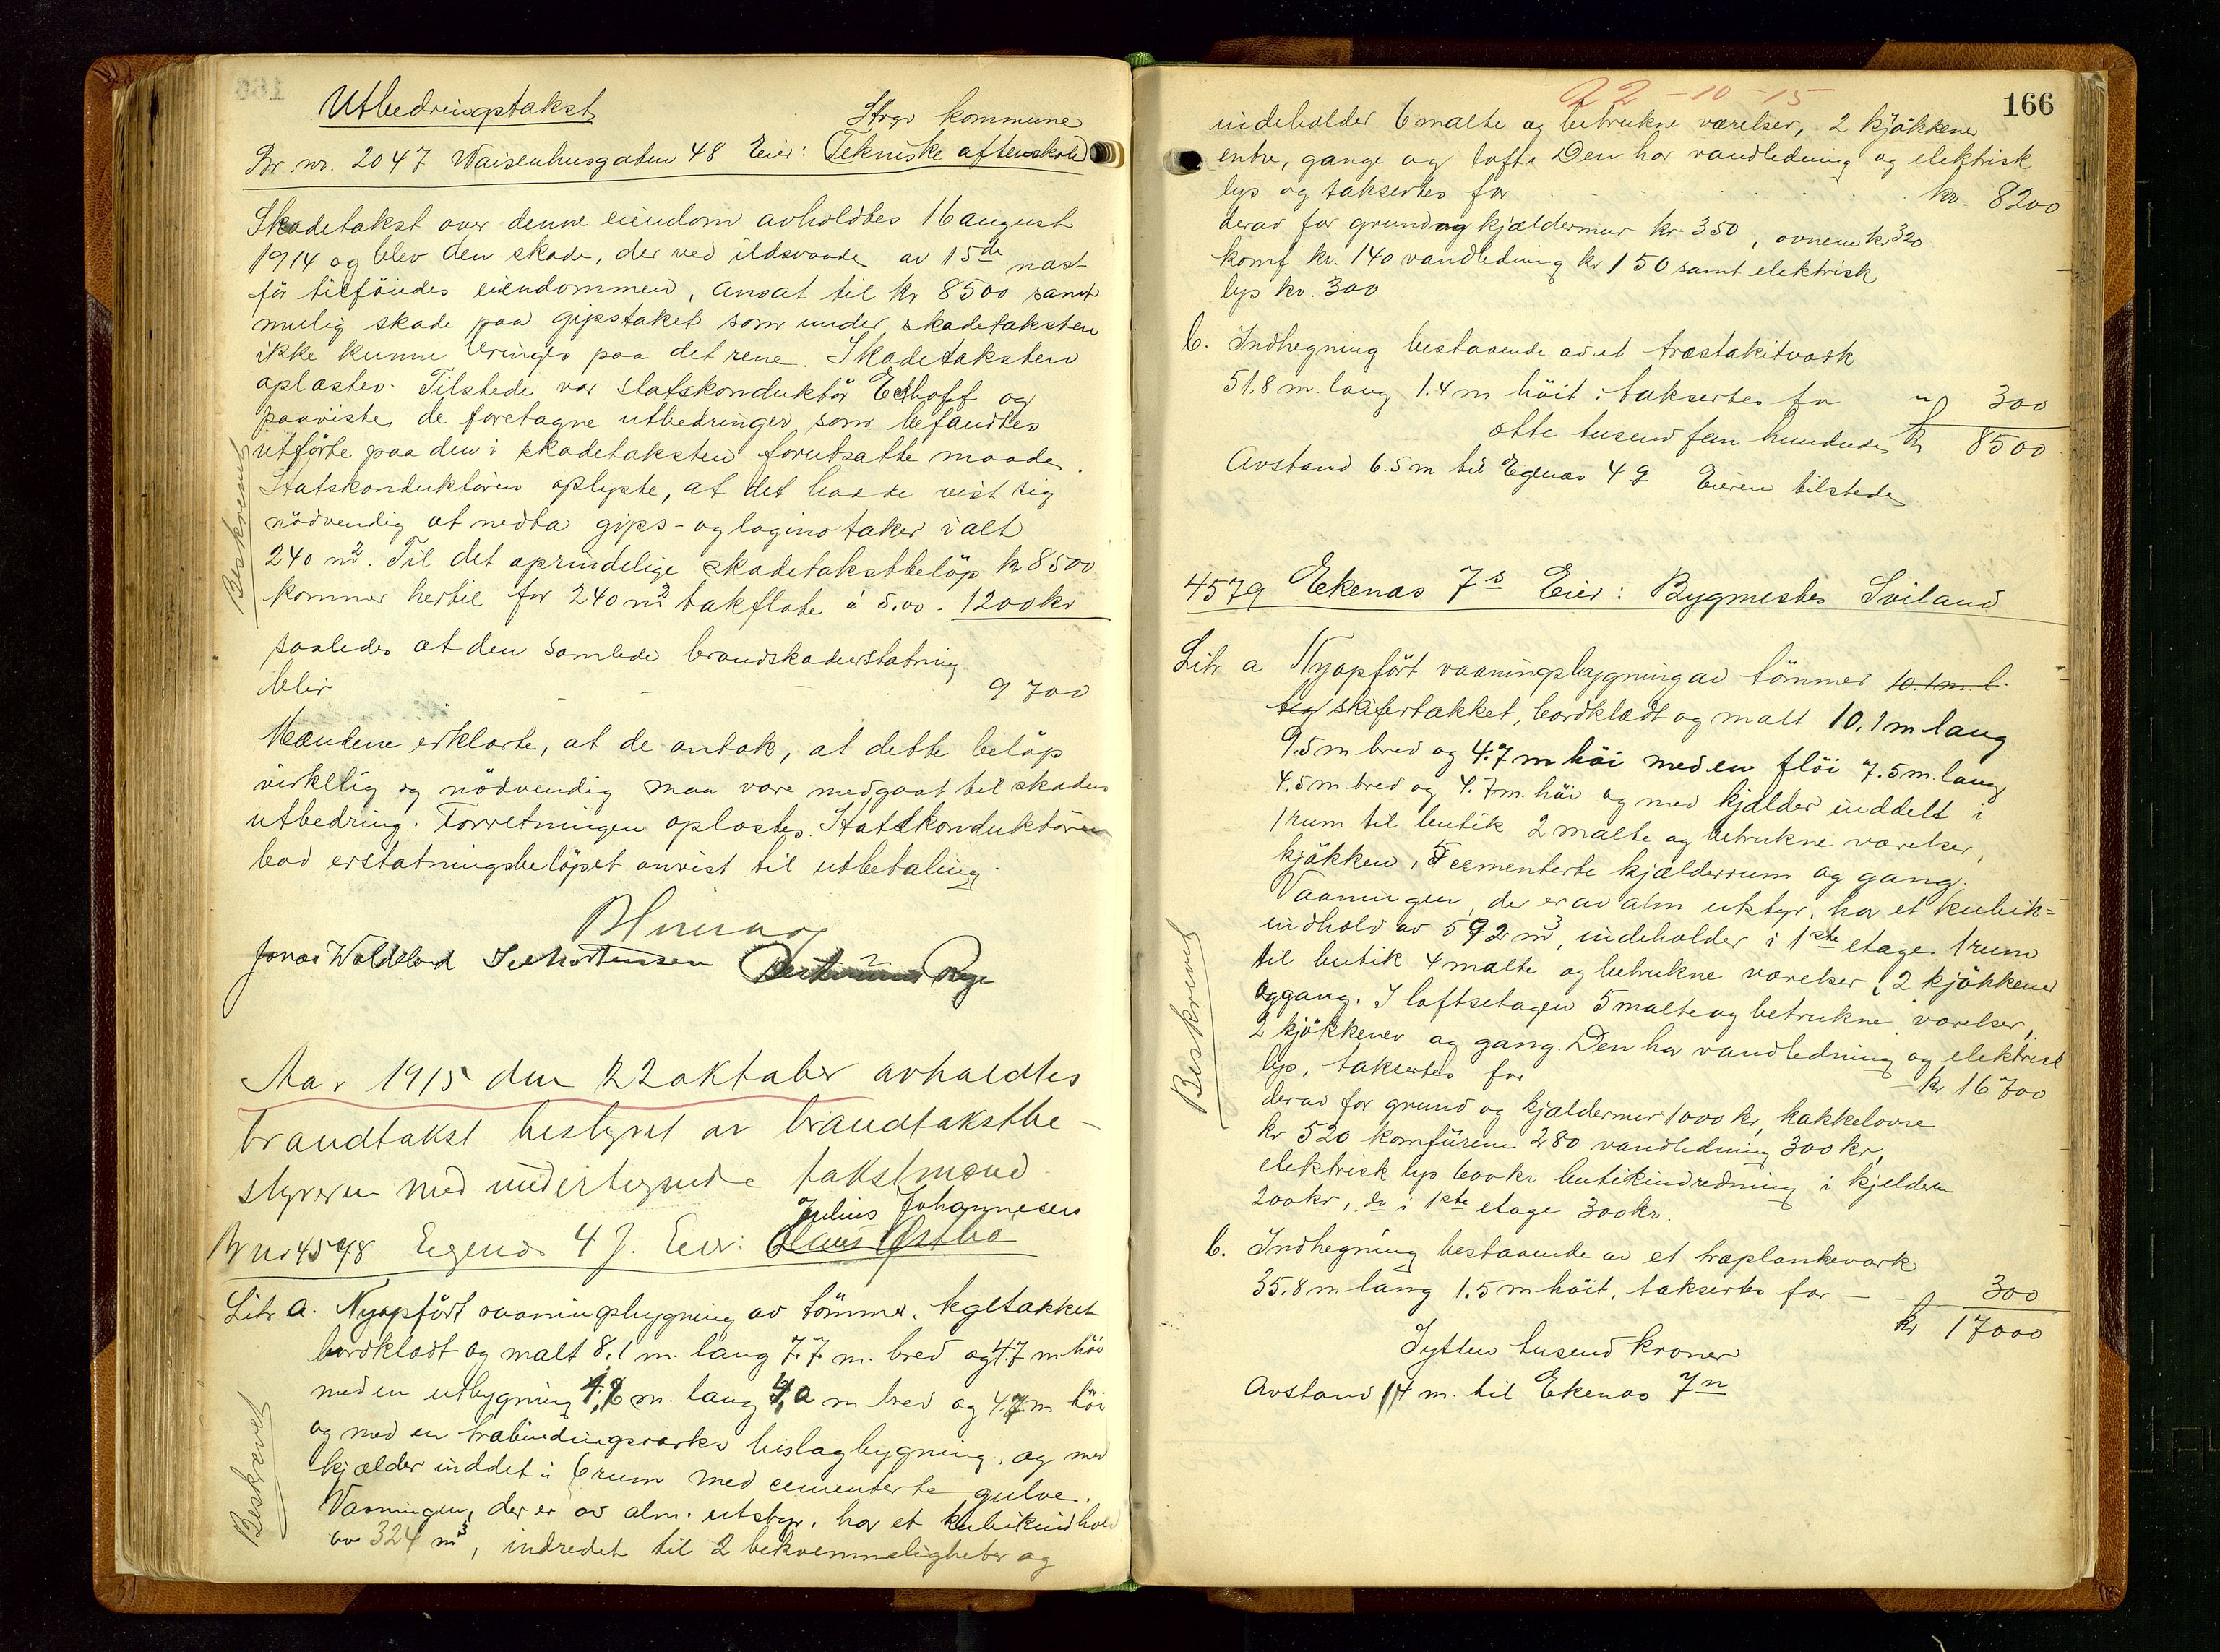 Utbedringstakst
Stvgr kommune
Br nr. 2047 Waisenhusgaten 48 Eier: (Tekniske aftenskole)
Skadetakst over denne eiendom avholdtes 16 august
1914 og blev den skade, der ved ildsvaade av 15de næst
før tilføiedes eiendommen, ansat til kr 8500 samt
mulig skade paa gipstaket som under skadetaksten
ikke kunne bringes paa det rene. Skadetaksten
oplæstes. Tilstede var slotskonduktør Eckhoff og
paaviste de foretagne utbedringer, som befandtes
utførte paa den i skadetaksten forutsatte maade.
Statskonduktøren oplyste, at det hadde vist sig
nödvendig at nedta gips- og lagino taker i alt
240 m2. Til det oprindelige skadetakstbelöp kr 8500
kommer hertil for 240 m2 takflate á 5.00 - 1200 kr
saaledes at den samlede brandskadeerstatning
blir - - - 9700
Mændene erklærte, at de antok, at dette belöp
virkelig og nödvendig maa være medgaat til skadens
utbedring. Forretningen oplæstes. Statskonduktören
bad erstatningsbelöpet anvist til utbetaling.
Beskrevet
Jonas Waldeland
Aar 1915 den 22 oktober avholdtes
brandtakst bestyret av brandtakstbe-
styreren med undertegnede takstmænd
Julius Johannesen
Br nr 4578 Egenæs 4 f. Eier: Claus Østbø
Litr a. Nyopført vaaningsbygning av tömmer, tegltækket
bordklædt og malt 8.1 m. lang 7.7 m. bred og 4.7 m høi
med en utbygning m. lang m bred og 4.7 m høi
og med en træbindingsverks bislagbygning, og med
kjælder inddelt i 6 rum med cementerte gulve.
Vaaningen, der er av alm. utstyr, har et kubikindhold
av 324 m3, indredet til 2 bekvemmeligheter og
Beskrevet
22-10-15
166
indeholder 6 malte og betrukne værelser, 2 kjökkener
entre, gange og loft. Den har vandledning og elektrisk
lys og taksertes for . . . . . . kr. 8200
derav for grund og kjældermur kr 350, ovnene kr 320
komf kr. 140 vandledning kr 150 samt elektrisk
lys kr. 300
b. Indhegning bestaaende av et træstakitverk
51.8 m. lang 1.4 m höit, taksertes for " 300
otte tusend fem hundrede kr 8500
Avstand 6.5 m til Egenæs 4 g Eieren tilstede
4579 Ekenæs 7 s Eier: Bygmester Sviland
Litr. a Nyopført vaaningsbygning av tömmer 10.1 m. l.
teg skifertækket, bordklædt og malt 10.1 m lang
9.5 m bred og 4.7 m höi med en flöi 7.5 m. lang
4.5 m bred og 4.7 m. höi og med kjælder inddelt i
1 rum til butik 2 malte og betrukne værelser,
kjökken, 5 cementerte kjælderrum og gang.
Vaaningen, der er av alm utstyr, har et kubik=
indhold av 592 m3, indeholder i 1ste etage 1 rum
til butik 4 malte og betrukne værelser, 2 kjökkener
og gang. I loftsetagen 5 malte og betrukne værelser,
2 kjökkener og gang. Den har vandledning og elektrisk
lys, taksertes for - kr 16700
derav for grund og kjældermur 1000 kr, kakkelovne
kr 520 komfürene 280 vandledning 300 kr,
elektrisk lys 600 kr butikindredning i kjelderen
200 kr, do i 1ste etage 300 kr.
Beskrevet
b. Indhegning bestaaende av et træplankeverk
35.8 m lang 1.5 m höit, taksertes for - - 300
kr 17000
Sytten tusend kroner
Avstand 14 m. til Ekenæs 7 n